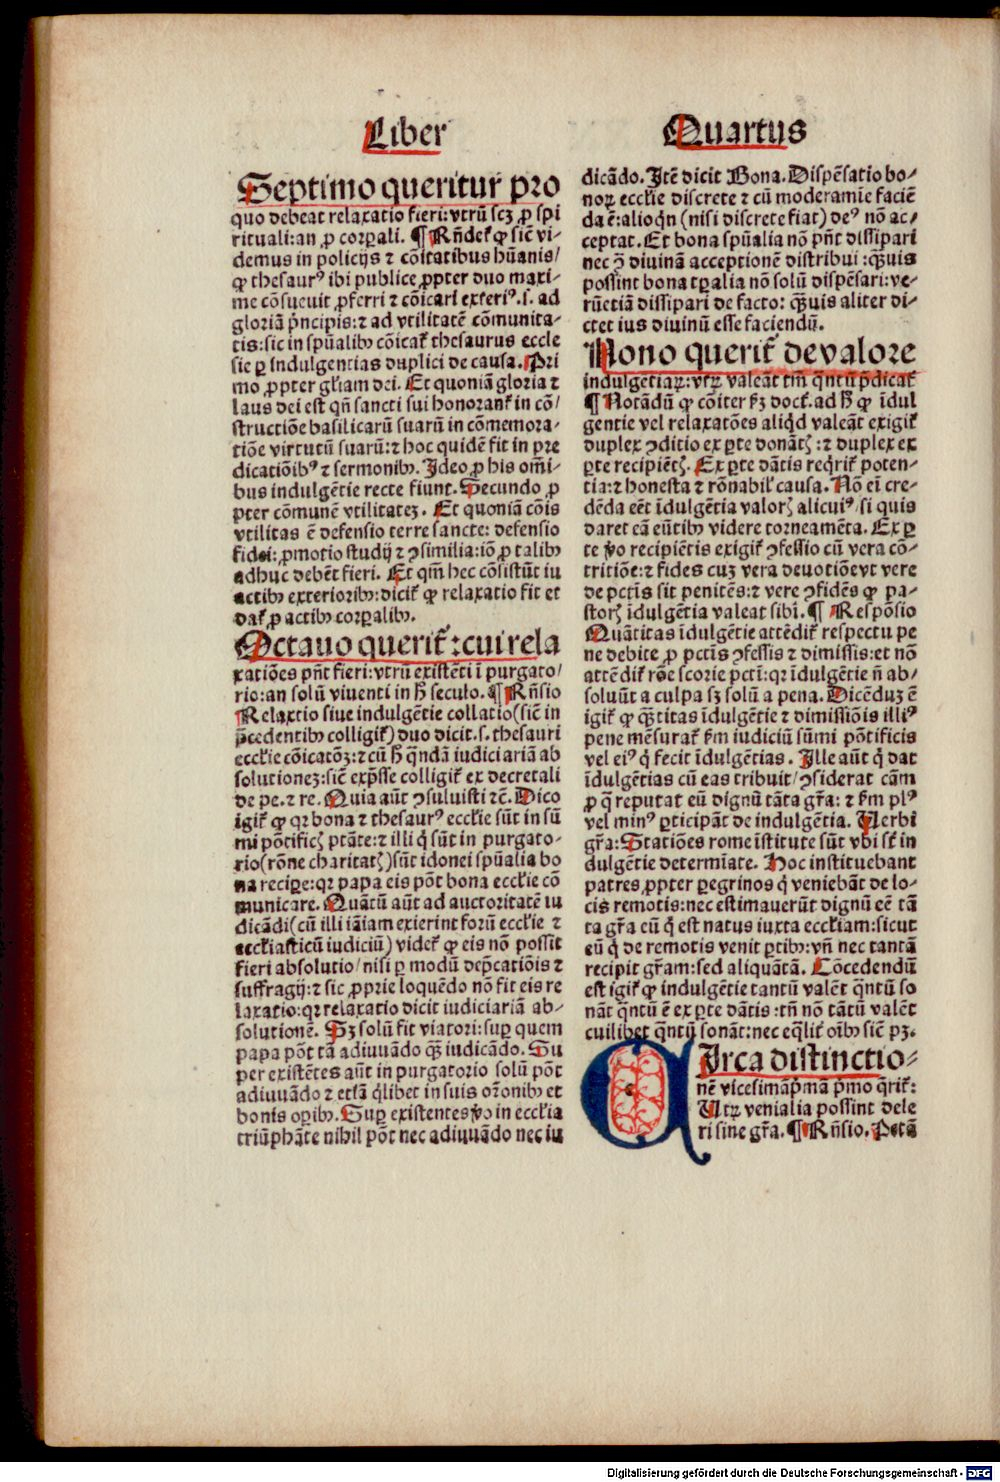 Liber
Quartus
Septimo queritur pro
quo debeat relaxatio fieri: vtrū scz ꝓ spi
rituali: an ꝓ corꝑali. ¶ Rn̄det᷑ ꝙ sic̄ vi-
demus in policijs ⁊ cōitatibus hūanis/
ꝙ thesaurꝰ ibi publice ꝓpter duo maxi-
me cōsueuit ꝓferri ⁊ cōicari exteriꝰ .s. ad
gloriā p̄ncipis: ⁊ ad vtilitatē cōmunita-
tis: sic in spūalibꝫ cōicat᷑ thesaurus eccle
sie ꝑ indulgentias duplici de causa. Pri
mo ꝓpter gl̄iam dei. Et quoniā gloria ⁊
laus dei est qn̄ sancti sui honorant᷑ in cō/
structiōe basilicarū suarū in cōmemora-
tiōe virtutū suarū: ⁊ hoc quidē fit in pre
dicatiōibꝰ ⁊ sermonibꝫ. Ideo ꝓ his om̄i-
bus indulgētie recte fiunt. Secundo ꝓ
pter cōmunē vtilitatez. Et quoniā cōis
vtilitas ē defensio terre sancte: defensio
fidei: ꝓmotio studij ⁊ ꝯsimilia: iō ꝓ talibꝫ
adhuc debēt fieri. Et qm̄ hec cōsistūt in
actibꝫ exterioribꝫ: dicit᷑ ꝙ relaxatio fit et
dat᷑ ꝓ actibꝫ corꝑalibꝫ.
Octauo querit᷑: cui rela
xatiōes pn̄t fieri: vtrū existēti ī purgato/
rio: an solū viuenti in h̄ seculo. ¶ Rn̄sio
Relaxtio siue indulgētie collatio (sic̄ in
p̄cedentibꝫ colligit᷑) duo dicit .s. thesauri
eccl̄ie cōicatōꝫ: ⁊ cū h̄ qͣndā iudiciariā ab
solutionez: sic̄ exp̄sse colligit᷑ ex decretali
de pe. ⁊ re. Quia aūt ꝯsuluisti ⁊c̄. Dico
igit᷑ ꝙ qꝛ bona ⁊ thesaurꝰ eccl̄ie sūt in sū
mi pōtificꝭ ptāte: ⁊ illi q̇ sūt in purgato-
rio (rōne charitatꝭ) sūt idonei spūalia bo
na reciꝑe: qꝛ papa eis pōt bona eccl̄ie cō
municare. Quātū aūt ad auctoritatē iu
dicādi (cū illi iāiam exierint forū eccl̄ie ⁊
eccl̄iasticū iudiciū) videt᷑ ꝙ eis nō possit
fieri absolutio/ nisi ꝑ modū dep̄catiōis ⁊
suffragij: ⁊ sic ꝓprie loquēdo nō fit eis re
laxatio: qꝛ relaxatio dicit iudiciariā ab-
solutionē. Sꝫ solū fit viatori: suꝑ quem
papa pōt tā adiuuādo qͣꝫ iudicādo. Su
per existētes aūt in purgatorio solū pōt
adiuuādo ⁊ etiā q̇libet in suis or̄onibꝫ et
bonis oꝑibꝫ. Suꝑ existentes ꝟo in eccl̄ia
triūphāte nihil pōt nec adiuuādo nec iu
dicādo. Itē dicit Bona. Dispēsatio bo-
noꝝ eccl̄ie discrete ⁊ cū moderamīe faciē
da ē: alioqͥn (nisi discrete fiat) deꝰ nō ac-
ceptat. Et bona spūalia nō pn̄t dissipari
nec ꝯ̄ diuinā acceptionē distribui: qͣꝫuis
possint bona tꝑalia nō solū dispēsari: ve-
rūetiā dissipari de facto: qͣꝫuis aliter di-
ctet ius diuinū esse faciendū.
Nono querit᷑ de valore
indulgētiaꝝ: vtꝝ valeāt tm̄ qͣntū p̄dicat᷑
¶ Notādū ꝙ cōiter ẜꝫ doct. ad h̄ ꝙ īdul
gentie vel relaxatōes aliqͥd valeāt exigit᷑
duplex ꝯditio ex ꝑte donātꝭ: ⁊ duplex ex
ꝑte recipiētꝭ. Ex ꝑte dātis reqͥrit᷑ poten-
tia: ⁊ honesta ⁊ rōnabil᷑ causa. Nō ei̅ cre-
dēda eēt īdulgētia valorꝭ alicuiꝰ/ si quis
daret eā eūtibꝫ videre torneamēta. Ex ꝑ
te ꝟo recipiētis exigit᷑ ꝯfessio cū vera cō-
tritiōe: ⁊ fides cuz vera deuotiōe vt vere
de pctīs sit penitēs: ⁊ vere ꝯfidēs ꝙ pa-
storꝭ īdulgētia valeat sibi. ¶ Respōsio
Quātitas īdulgētie attēdit᷑ respectu pe
ne debite ꝓ pctīs ꝯfessis ⁊ dimissis: et nō
attēdit᷑ rōe scorie pcti: qꝛ īdulgētie n̄ ab-
soluūt a culpa sꝫ solū a pena. Dicēduz ē
igit᷑ ꝙ qͣꝫtitas īdulgētie ⁊ dimissiōis illiꝰ
pene mēsurat᷑ ẜm iudiciū sūmi pōtificis
vel eiꝰ q̇ fecit īdulgētias. Ille aūt q̇ dat
īdulgētias cū eas tribuit/ ꝯsiderat cām
ꝓ q̄ reputat eū dignū tāta gr̄a: ⁊ ẜm plꝰ
vel minꝰ ꝑticipāt de indulgētia. Verbi
gr̄a: Statiōes rome īstitute sūt vbi st̄ in
dulgētie determīate. Hoc instituebant
patres ꝓpter ꝑegrinos q̇ veniebāt de lo-
cis remotis: nec estimauerūt dignū eē tā
ta gr̄a eū q̇ est natus iuxta eccl̄iam: sicut
eū q̇ de remotis venit ꝑtibꝫ: vn̄ nec tantā
recipit gr̄am: sed aliquātā. Cōcedendū
est igit᷑ ꝙ indulgētie tantū valēt qͣntū so
nāt qͣntū ē ex ꝑte dātis: tn̄ nō tātū valēt
cuilibet qͣntū sonāt: nec eq̄lit᷑ oībꝫ sic̄ pꝫ.
CIrca distinctio-
nē vicesimāp̄mā p̄mo q̄rit᷑:
Vtꝝ venialia possint dele
ri sine gr̄a. ¶ Rn̄sio. Pctā
Digitalisierung gefördert durch die Deutsche Forschungsgemeinschaft - DFG